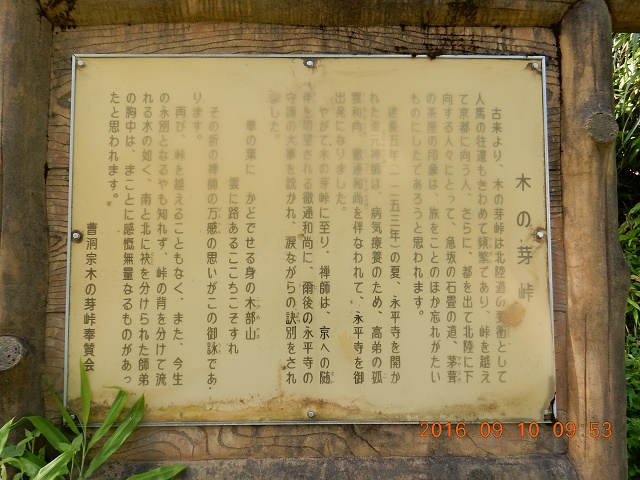 木の芽峠
古来より、木の芽峠は北陸道の要衝として
人馬の往還もきわめて頻繁であり、峠を越え
て京都に向う人、さらに、都を出て北陸に下
向する人々にとって、急坂の石畳の道、茅葺
の茶屋の印象は、旅をことのほか忘れがたい
ものにしたであろうと思われます。
建長五年(一二五三年)の夏、永平寺を開か
れた道元禅師は、病気療養のため、高弟の孤
雲和尚、徹通和尚を伴なわれて、永平寺を御
出発になりました。
やがて木の芽峠に至り、禅師は、京への随
される徹通和尚に、爾後の永平寺の
守護の大事を説かれ、涙ながらの訣別をされ
ました。
草の葉に かどでせる身の木部山
雲に路あるここちこそすれ
その折の禅師の万感の思いがこの御詠であ
ります。
再び、峠を越えることもなく、また、今生
の永別となるやも知れず、峠の背を分けて流
れる水の如く、南と北に袂を分けられた師弟
の胸中は、まことに感慨無量なるものがあっ
たと思われます。
曹洞宗木の芽峠奉賛会
2016.09.10 09:53